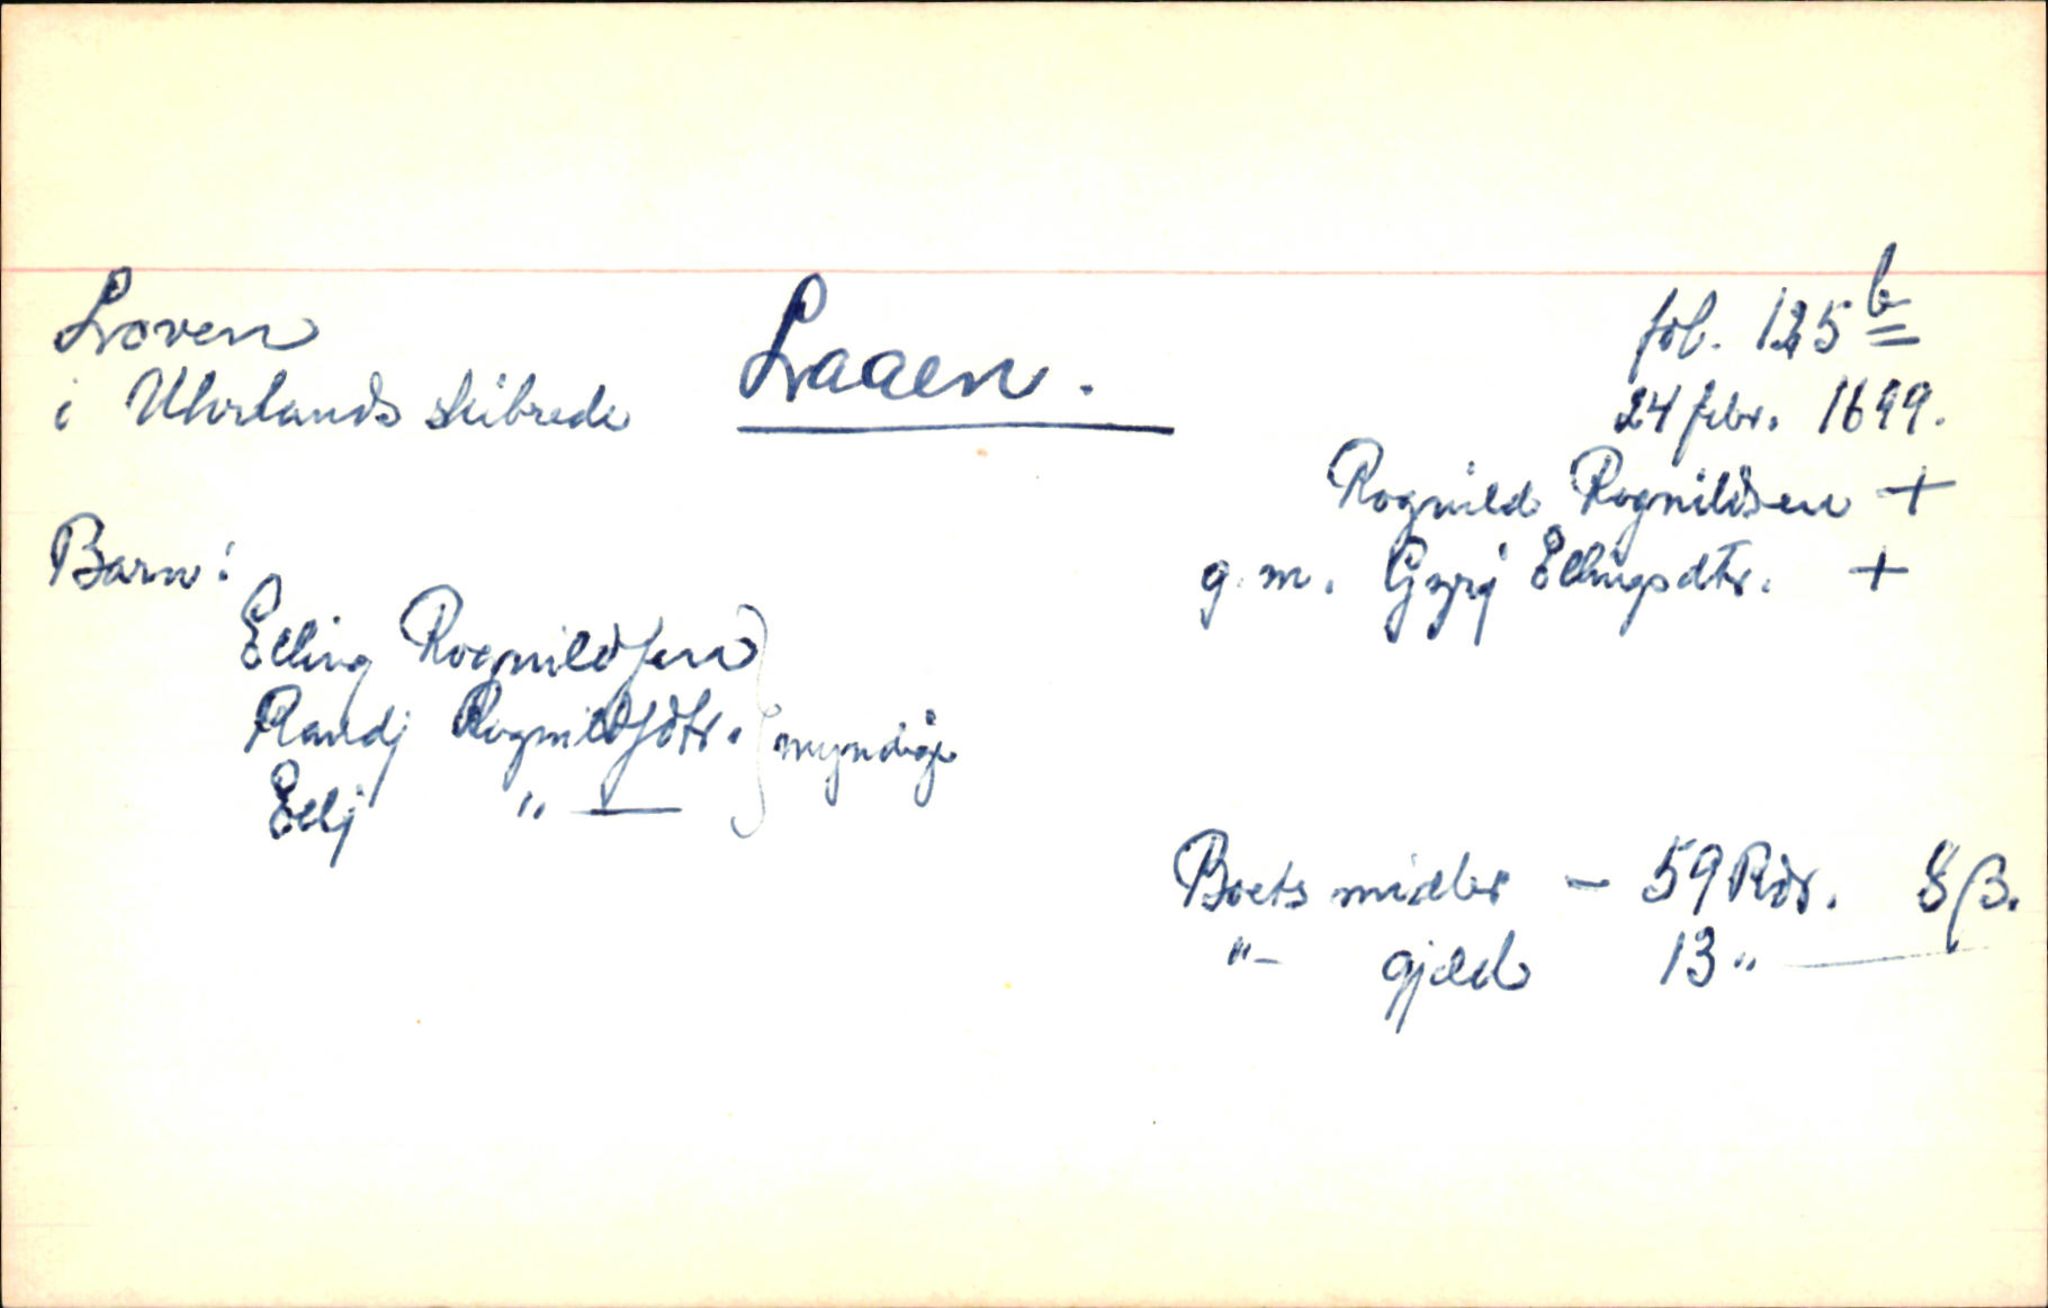 Loven
i Uhrlands skibrede
Laaen.
fol. 125 b
24 febr. 1699.
Rognild Rognildsen +
g. m. Gyrj Ellingsdtr. +
Barn:
Elling Rognildsen
Randj Rognildsdtr.
Eelj " —
myndige
Boets midler – 59 Rdr. 8 ß.
"– gjæld 13 " —